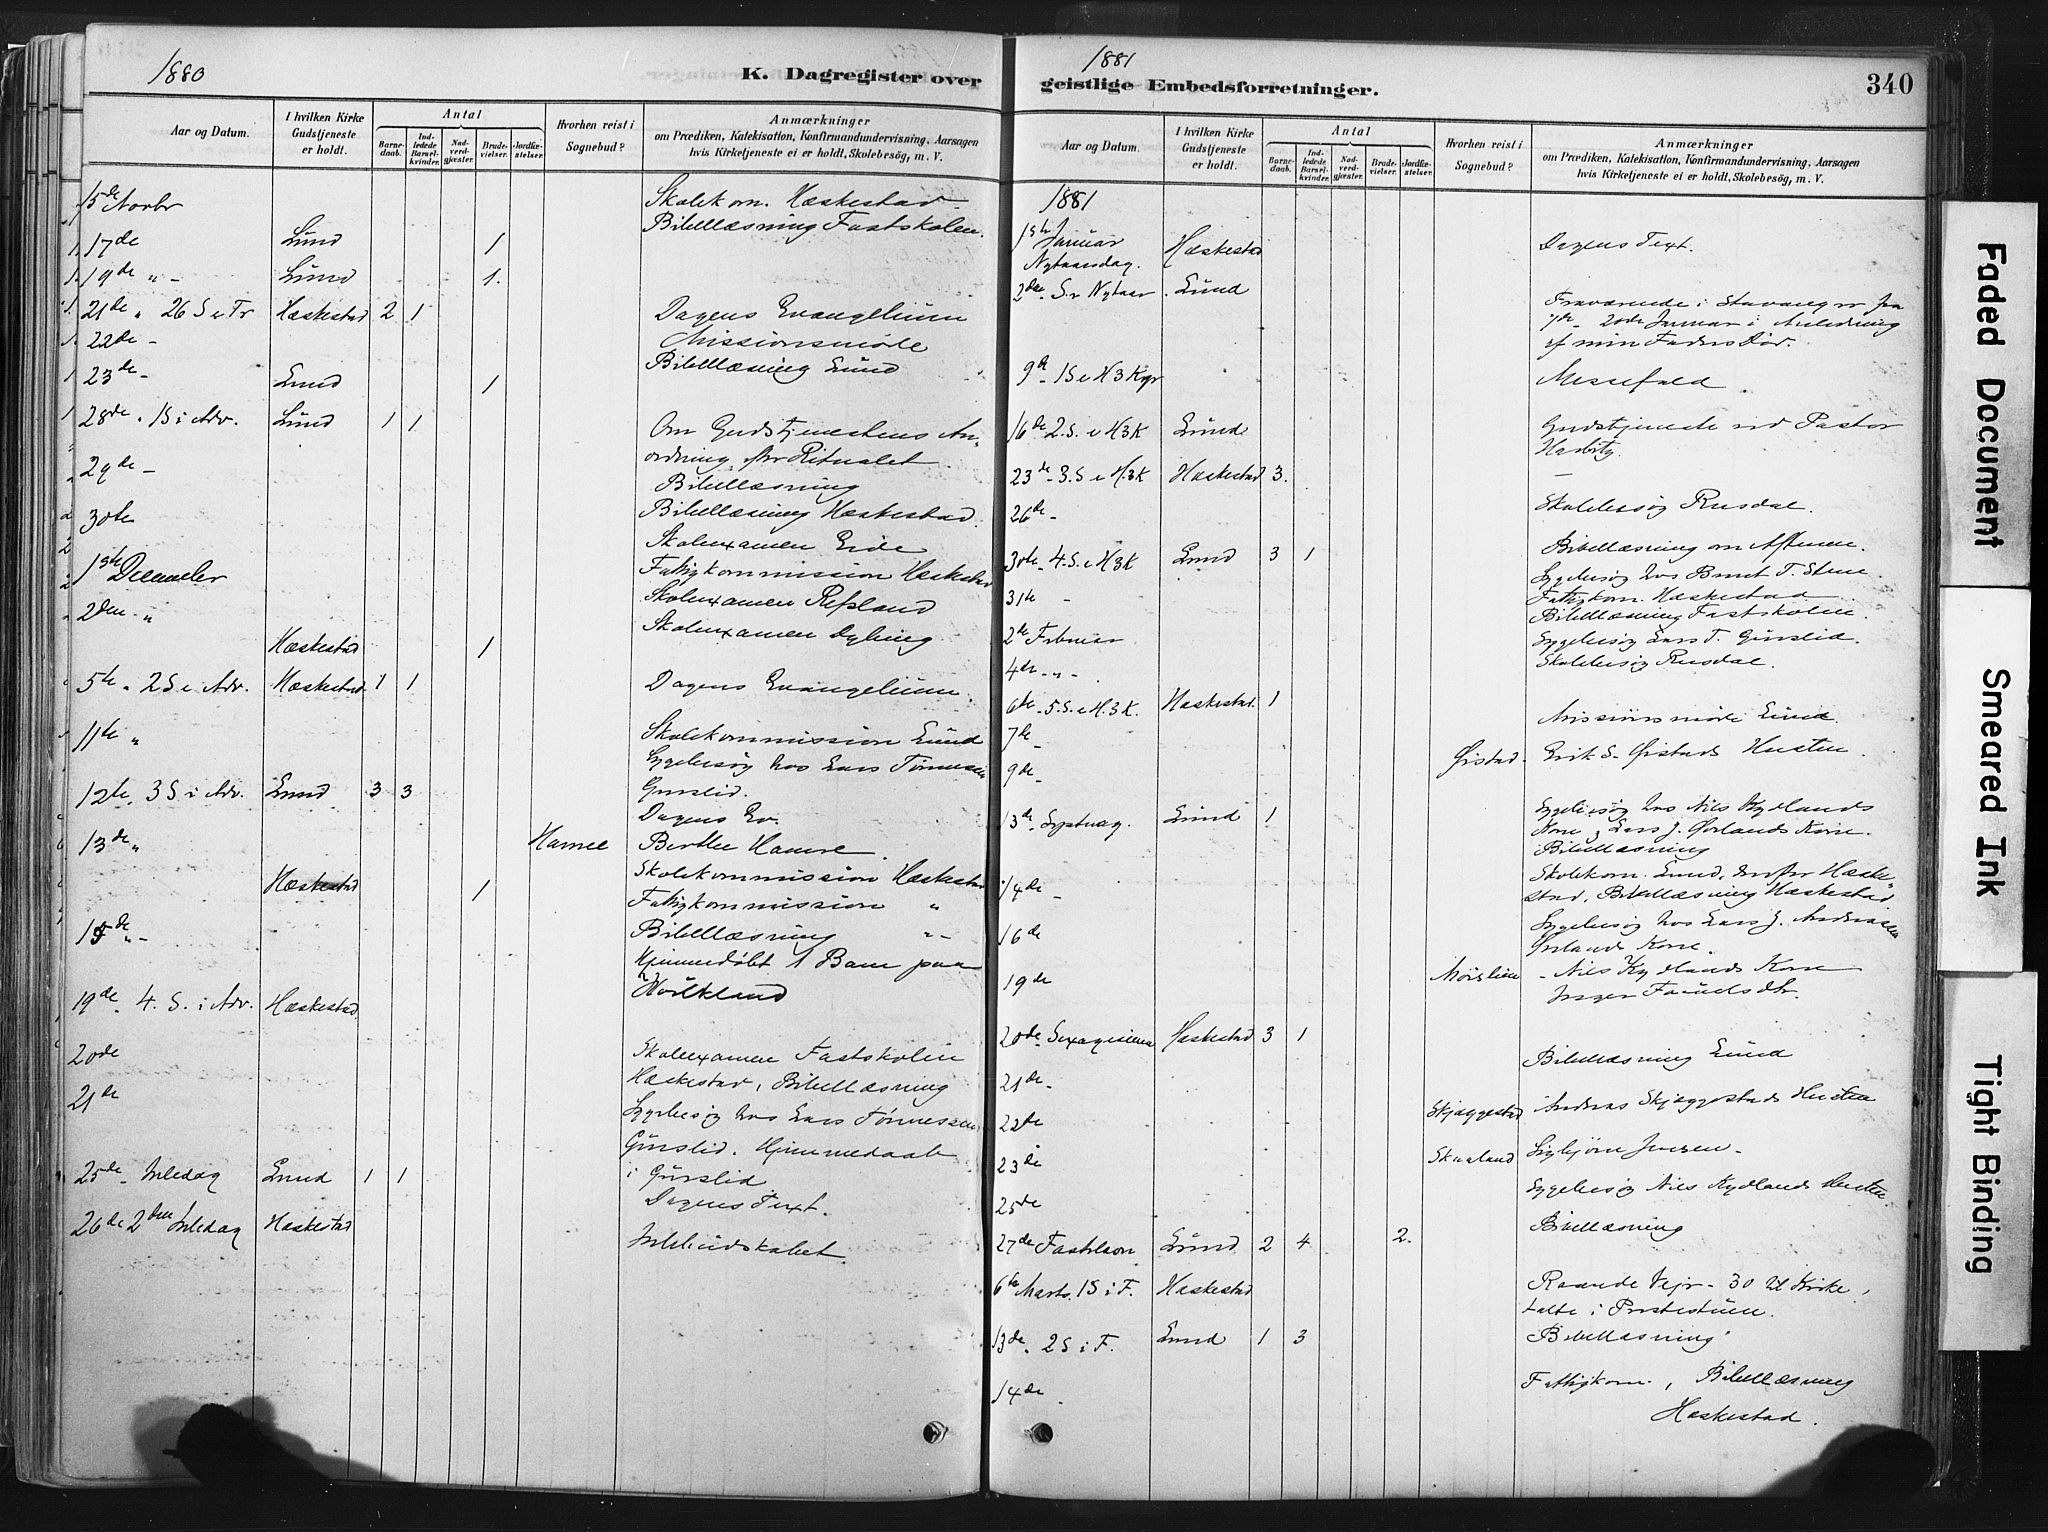 1880
K. Dagregister over
Aar og Datum.
I hvilken Kirke Gudstjeneste er holdt.
Antal
Barnedaab.
Indledede Barselkvinder.
Nadverdgjester.
Brudevielser.
Jordfæstelser.
Hvorhen reist i Sognebud?
Anmærkninger
om Prædiken, Katekisation, Konfirmandundervisning, Aarsagen
hvis Kirketjeneste ei er holdt, Skolebesøg, m. V.
15de Novbr Skolekom. Hæskestad
Bibellæsning Fastskolen.
17de Lund 1
19de " - Lund 1.
21de " 26 S e Tr Hæskestad 2 1 Dagens Evangelium
22de - Missionsmøde
Bibellæsning Lund
23de - Lund 1
28de " 1S i Adv. Lund 1 1 Om Gudstjenestens An-
ordning efter Ritualet
29de - Bibellæsning
30te Bibellæsning Hæskestad.
Skolexamen Eide
1ste December Fattigkommission Hæskestad
2den " Skolexamen Refsland
Skolexamen Dybing
Hæskestad 1
5te " 2S i Adv. Hæskestad 1 1 Dagens Evangelium.
11te " Skolekommission Lund
Sygebesøg hos Lars Tønnesen
12te, 3S i Adv. Lund 3 3 Gurslid.
Dagens Ev.
13de " Hamre Berthe Hamre.
Hæskestad 1 Skolekommission Hæskestad
Fattigkommission "
15de " - Bibellæsning " -
Hjemmedøbt 1 Barn paa
19de. 4. S. i Adv. Hæskestad.
20de Skolexamen Fastskolen
21de Hæskestad, Bibellæsning
Sygebesøg hos Lars Tønnessen
Gurslid. Hjemmedaab
25de. Juledag Lund 1 1 i Gurslid
Dagens Text.
26de 2den Juledag Hæskestad
Julebudskabet.
1881
geistlige Embedsforretninger.
340
Aar og Datum.
I hvilken Kirke Gudstjeneste er holdt.
Antal
Barnedaab.
Indledede Barselkvinder.
Nadverdgjester.
Brudevielser.
Jordfæstelser.
Hvorhen reist i Sognebud?
Anmærkninger
om Prædiken, Katekisation, Konfirmandundervisning, Aarsagen
hvis Kirketjeneste ei er holdt, Skolebesøg, m. V.
1881
1ste Januar Hæskestad Dagens Text.
Nytaarsdag.
2den S. e Nytaar. Lund Fraværende i Stavanger fra
7de - 20de Januar i Anledning
af min Faders Død.
9de - 1S e H3Kgr Messefald
16de 2.S. e H3K Lund Gudstjeneste ved Pastor
23de - 3.S e H.3K Hæskestad 3. -
26de - Skolebesøg Rusdal.
30te - 4.S. e H3K Lund 3 1 Bibellæsning om Aftenen.
Sygebesøg hos Bernt T. Stene.
31te - Fattigkom. Hæskestad
Bibellæsning Fastskolen
2de Februar Sygebesøg Lars T. Gurslid.
4de - " - Skolebesøg Rusdal.
6te - 5.S. e H.3K. Hæskestad. 1
7de - Missionsmøde Lund.
9de - Ørstad. Erik S. Ørstads Hustru
13de. Lund 1 Sygebesøg hos Nils Kydlands
Kone, Lars J. Kone.
Bibellæsning
14de - Skolekom. Lund, derefter Hæske-
stad, Bibellæsning Hæskestad
16de Sygebesøg hos Lars J. Andreassen
Kone.
19de - Nils Kydlands Kone
20de - Sexagesima Hæskestad 3 1
21de - Bibellæsning Lund
22de Skjæggestad Andreas Skjæggestads Hustru
23de Skaaland Sigbjørn Jensen -
25de Sygebesøg Nils Kydlands Hustru
Bibellæsning
27de Fastelavn Lund 2 4 2.
6te Marts. 1S i F. Hæskestad Raande Vejr - 30 til Kirke,
talte i Præstestuen.
13de. 2S i F. Lund 1 3 Bibellæsning
14de. Fattigkom., Bibellæsning
Hæskestad.
Faded Document
Smeared Ink
Tight Binding